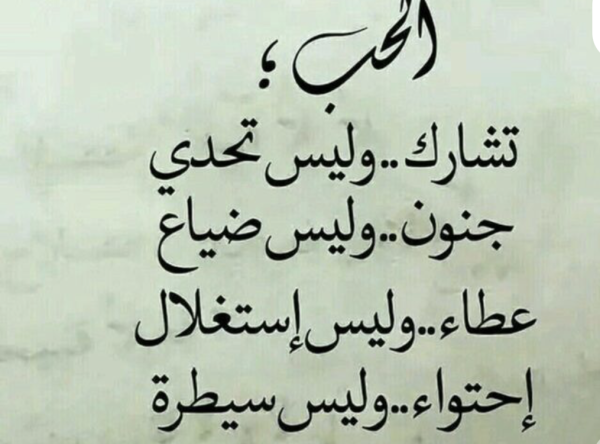 الحب ؛
تشارك..وليس تحدي
جنون..وليس ضياع
عطاء..وليس إستغلال
إحتواء..وليس سيطرة